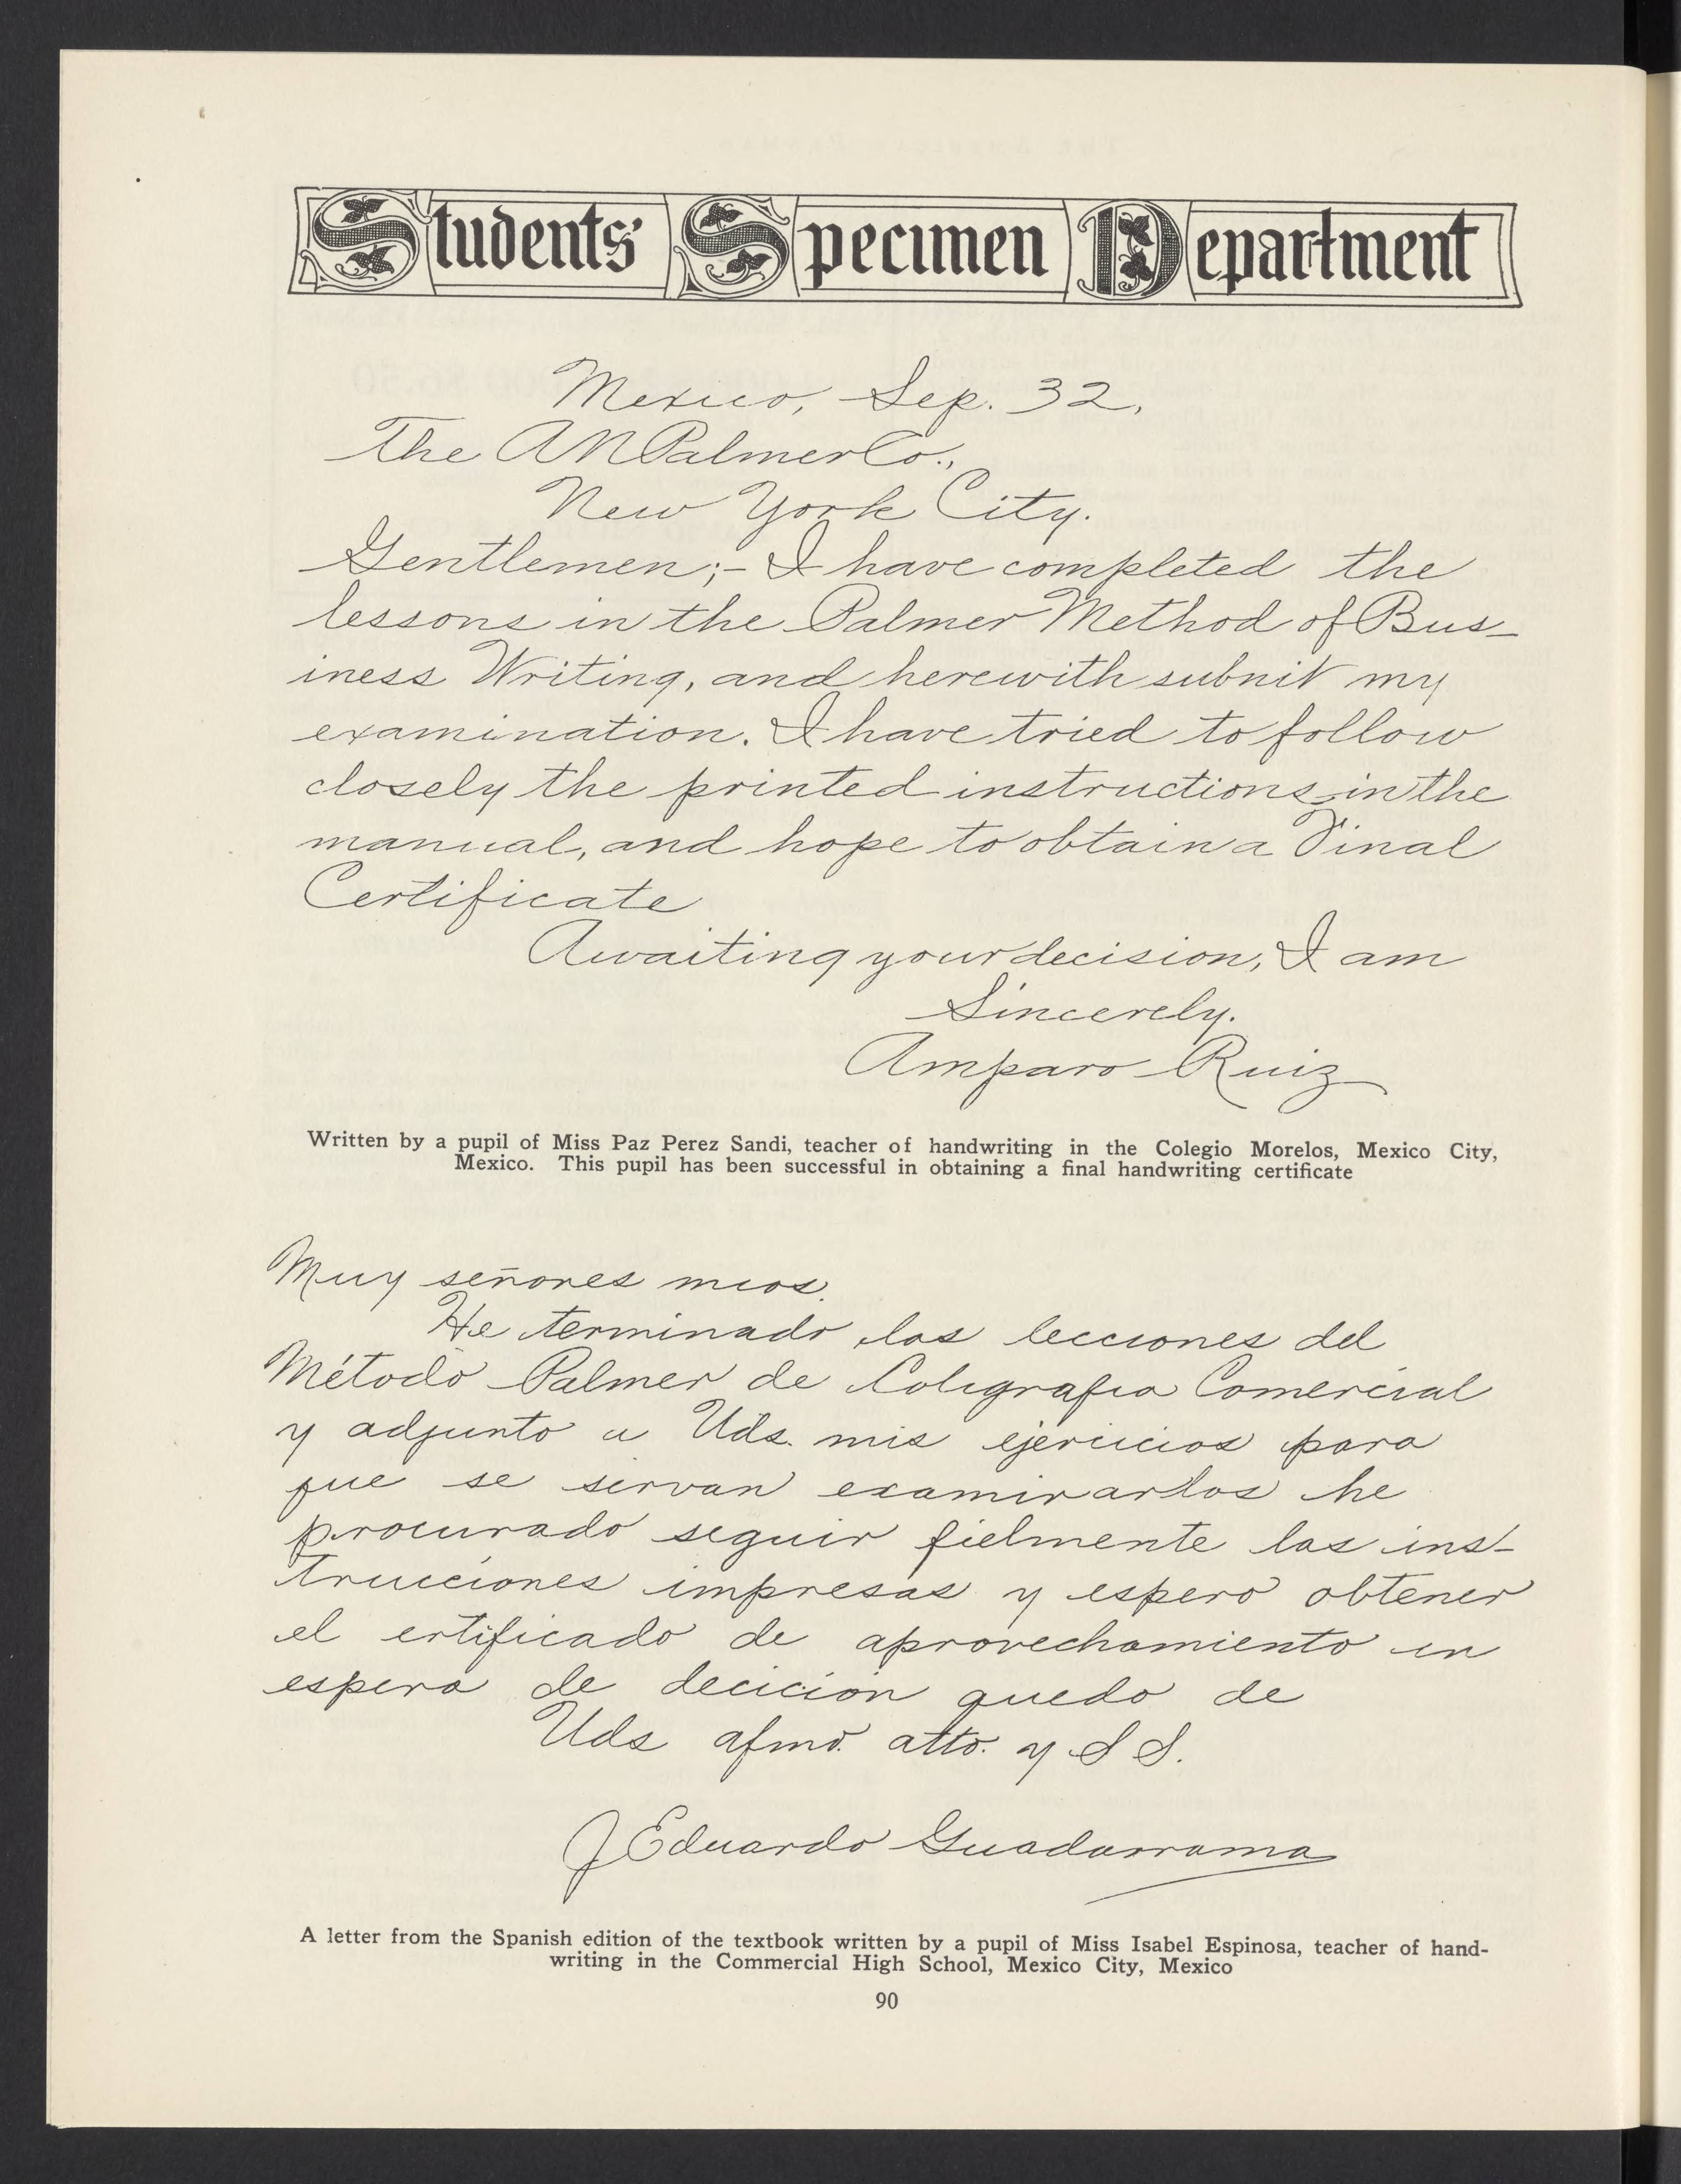 Students' Specimen Department
Mexico, Sep. 32.
The A N Palmer Co.,
New York City.
Gentlemen;- I have completed the
lessons in the Palmer Method of Bus-
iness Writing, and herewith subnit my
examination. I have tried to follow
closely the printed instructions in the
manual, and hope to obtain a Final
Certificate
Awaiting your decision, I am
Sincerely.
Amparo Ruiz
Written by a pupil of Miss Paz Perez Sandi, teacher of handwriting in the Colegio Morelos, Mexico City,
Mexico. This pupil has been successful in obtaining a final handwriting certificate
Muy señores mios.
He terminado las lecciones del
Método Palmer de Caligrafia Comercial
y adjunto a Uds. mis ejercicios para
que se sirvan examinarlos he
procurado seguir fielmente las ins-
trucciones impresas y espero obtener
el ertificado de aprovechamiento en
espera de decición quedo de
Uds afmo. atto. y S S.
J Eduardo Guadarrama
A letter from the Spanish edition of the textbook written by a pupil of Miss Isabel Espinosa, teacher of hand-
writing in the Commercial High School, Mexico City, Mexico
90